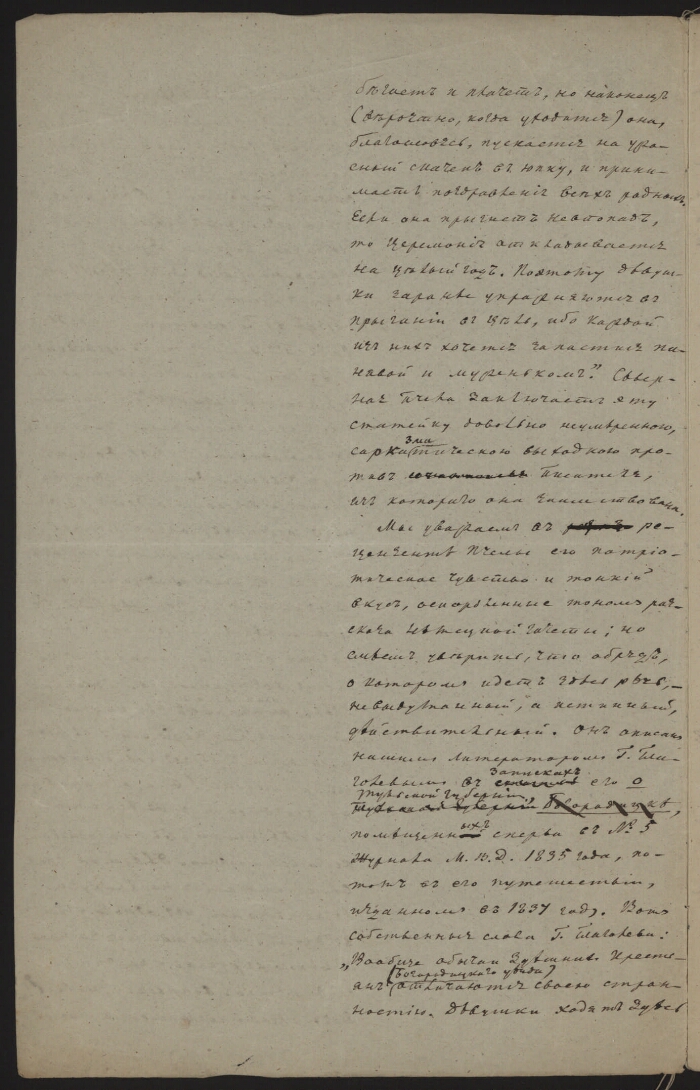 бѣгаетъ и плачетъ, но наконецъ
(вѣроятно, когда уходится) она,
благословясь, пускается на ужа-
сный скачекъ въ юпку, и прини-
маетъ поздравленія всѣхъ родныхъ.
Если она прыгнетъ невпопадъ,
то церемонія откладывается
на цѣлый годъ. Поэтому дѣвуш-
ки заранѣе упражняются въ
прыганіи въ цѣль, ибо каждой
изъ нихъ хочется запастись па-
невой и муженькомъ." Сѣвер-
ная Пчела заключаетъ эту
статейку довольно неумѣренною,
саркастическою выходкою про-
тивъ писателя,
изъ котораго она заимствована.
Мы уважаемъ въ ре-
цензентѣ Пчелы его патріо-
тическое чувство и тонкій
вкусъ, оскорбленные тономъ раз-
сказа Нѣмецкой газеты; но
смѣемъ увѣрить, что обрядъ,
о которомъ идетъ здѣсь рѣчь,—
невыдуманный, а истинный,
дѣйствительный. Онъ описанъ
нашимъ литераторомъ Г. Гла-
голевымъ въ запискахъ его о
Тульской Губерніи
Богородицкѣ,
помѣщенныхъ сперва въ № 5
Журнала М. В. Д. 1835 года, по-
томъ въ его путешествіи,
изданномъ въ 1837 году. Вотъ
собственныя слова Г. Глаголева:
„Вообще обычаи здѣшнихъ Кресть-
янъ (Богородицкаго уѣзда)
отличаются своею стран-
ностію. Дѣвушки ходятъ здѣсь